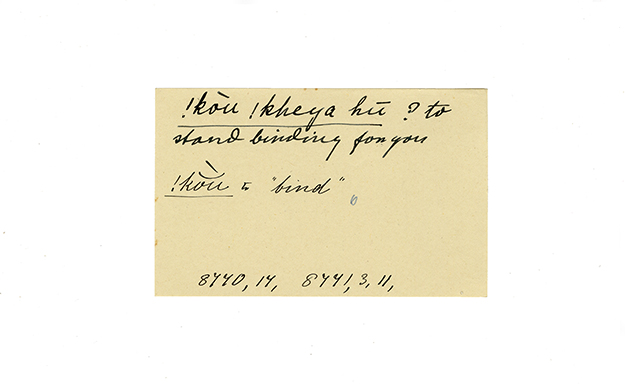 !kòu !kheya hī ? to
stand binding for you
!kòu to "bind"
8770, 17, 8771, 3, 11,